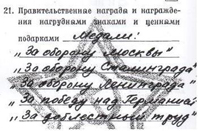 21. Правительственные награды и награжде-
ния нагрудными знаками и ценными
подарками Медали:
"За оборону Москвы"
"За оборону Сталинграда"
"За оборону Ленинграда"
"За победу над Германией"
"За доблестный труд"